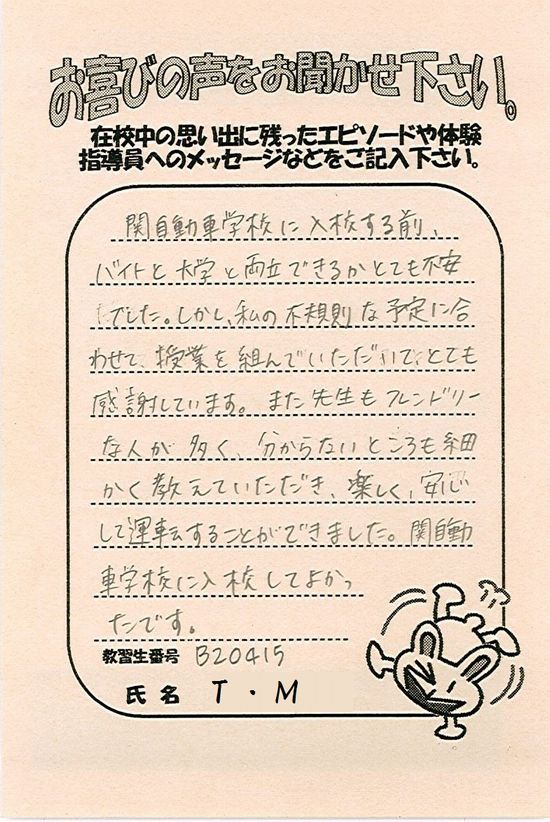 お喜びの声をお聞かせ下さい。
在校中の思い出に残ったエピソードや体験
指導員へのメッセージなどをご記入下さい。
関自動車学校に入校する前、
バイトと大学と両立できるかとても不安
でした。しかし、私の不規則な予定に合
わせて、授業を組んでいただいて、とても
感謝しています。また先生もフレンドリー
な人が多く、分からないところも細
かく教えていただき、楽しく、安心
して運転することができました。関自動
車学校に入校してよかっ
たです。
教習生番号 B20415
氏名 T・M